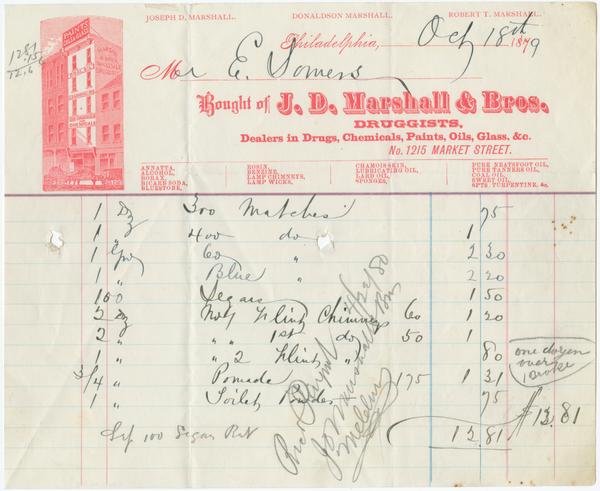 JOSEPH D. MARSHALL. DONALDSON MARSHALL. ROBERT T. MARSHALL.
Philadelphia, Oct 18th 1879
Mr E. Somers
Bought of J. D. Marshall & Bros.
DRUGGISTS,
Dealers in Drugs, Chemicals, Paints, Oils, Glass, &c.
No. 1215 MARKET STREET.
PAINTS
OILS & GLASS
ANNATTA, ROSIN, CHAMOIS SKIN, PURE NEATSFOOT OIL,
ALCOHOL, BENZINE, LUBRICATING OIL, PURE TANNERS OIL,
BORAX, LAMP CHIMNEYS, LARD OIL, COAL OIL,
BICARB SODA, LAMP WICKS, SPONGES, SWEET OIL,
BLUESTONE, SPTS. TURPENTINE, &c.
1 Dz 300 Matches 75
1 " 400 do 1
1 Gro 60 " 2 30
1 " Blue " 2 20
100 Segars 1 50
2 Dz No 1 Flint Chimneys 60 1 20
2 " " " 1st do 50 1
1 " " 2 Flint " 80
3/4 " Pomade 175 1 31
1 " Toilet Powder 75
12.81
$12.81
100 Segar
one dozen
over
broke
Recd Payment
J D Marshall & Bros